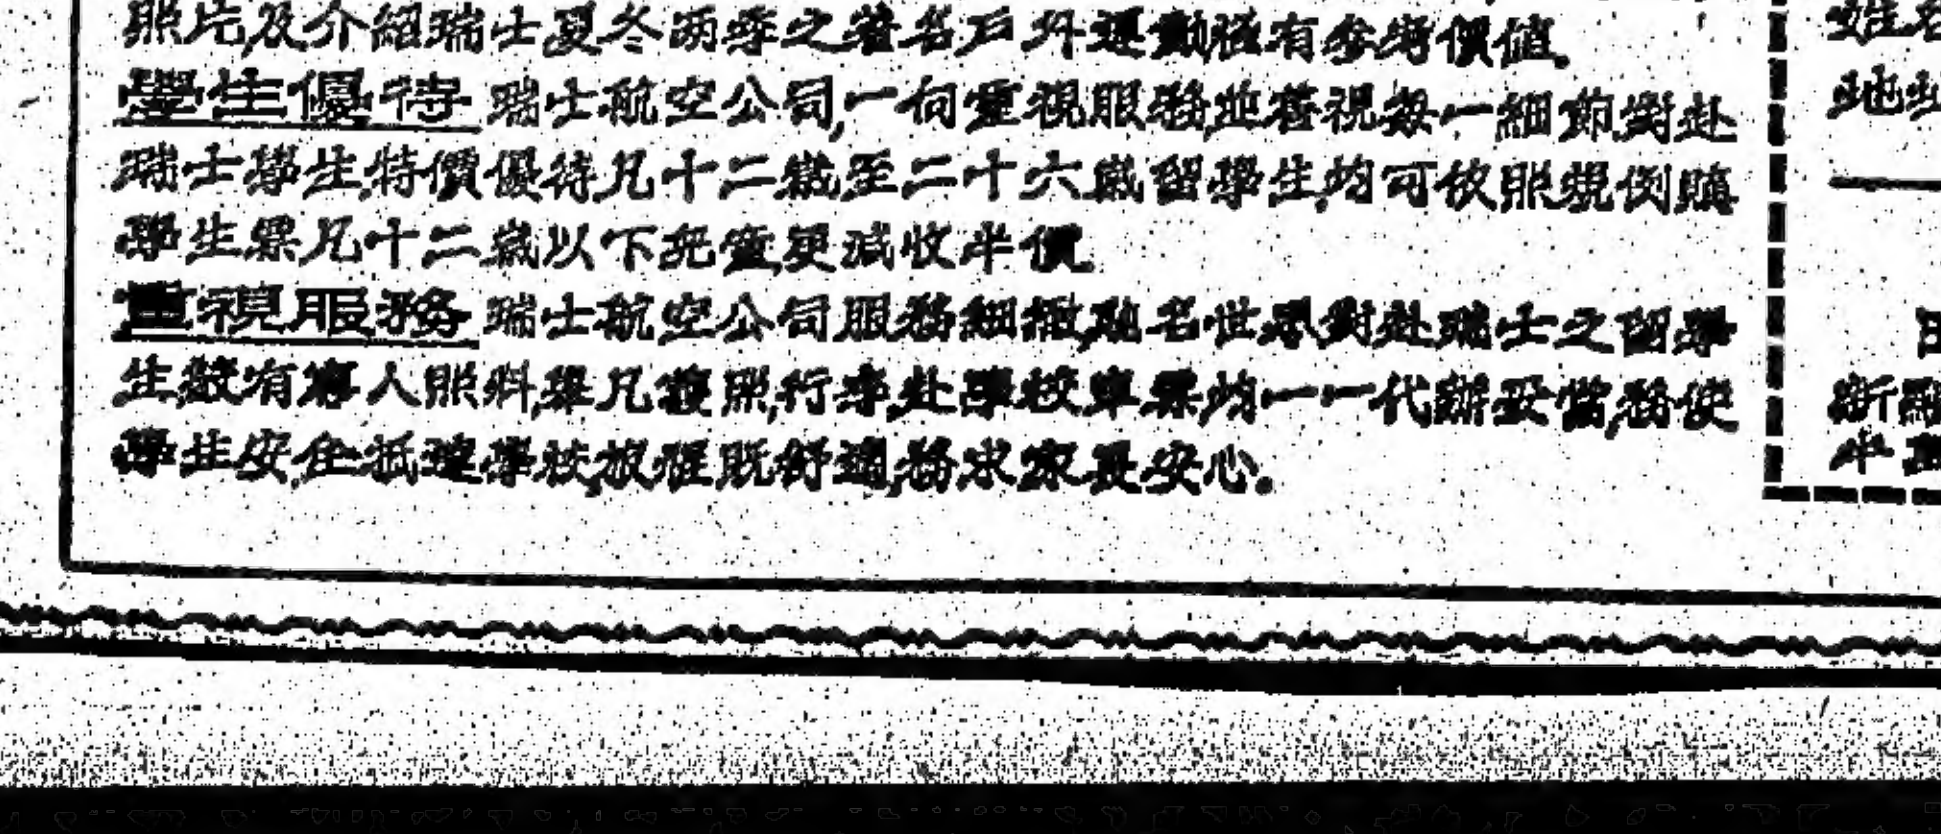 照片,及介紹瑞士夏冬兩季之著名戶外運動,極有參考價值。
學生優待 瑞士航空公司,一向重視服務,並着視每一細節,對赴
瑞士學生,特價優待,凡十二歲至二十六歲留學生,均可依照規例購
學生票,凡十二歲以下兒童,更減收半價。
重視服務 瑞士航空公司服務細緻,馳名世界,對赴瑞士之留學
生,設有專人照料,舉凡護照,行李,赴學校車票,均一一代辦妥當,務使
學生安全抵達學校,旅程既舒適,務求家長安心。
姓名
地址
新
半